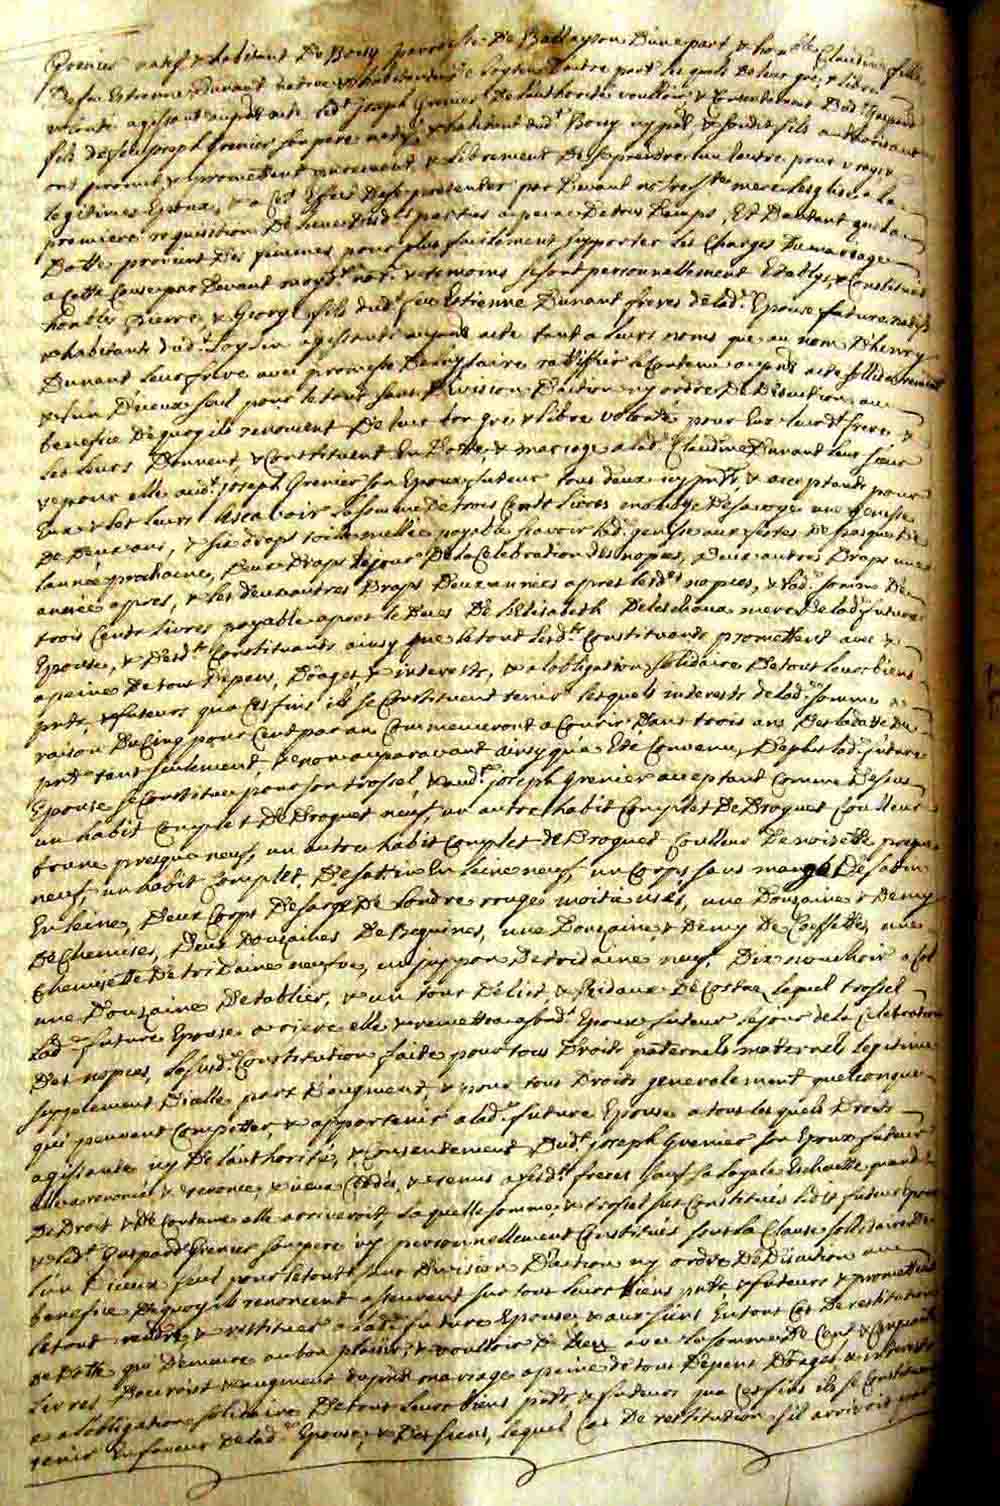 Grenier natif & habitant De Bossy parroisse De Ballayson Dune part & hon.ble Claudine fille
De feu Estienne Dunant native & habitante de Loysin D'autre part les quels De leur gré & libre
volonté agissant supdt acte led.t joseph Grenier De l'authorité voulloir & Consentement Dud.t Gaspard
fils de feu joseph Grenier son pere natif & habitant dud.t Bossy icy pnt & sond.t fils authorisant
ont promis & promettent purement & librement De se prendre l'un l'autre pour vrays &
legitimes Epoux, & a Cet Effet De se presenter par Devant n.re ste mere Leglise a la
premiere requisition De l'une Desd.tes parties a peine De tous Dempts, Et D'autant que la
Dotte provient Des femmes pour plus facilement supporter les Charges Du mariage
a Cette Cause par Devant moyd.t not.e & temoins se sont personnellement Etablys & Constitués
hon.bles Pierre, & George fils dud.t feu Estienne Dunant freres de lad.te Epouse future natifs
& habitants dud.t Loysin agissants aupnt acte tant a leurs noms que au nom D'henry
Dunant leur frere avec promesse De luy faire rattiffier le Contenu aupnt acte sollidairement
& l'un D'iceux seul pour le tout sans Division D'action ny ordre De Discution au
benefice Dequoy ils renoncent De leur bon gré & libre volonté pour Eux leurd.t frere &
les leurs Donnent & Constituent En Dotte & mariage a lad.te Claudine Dunant leur sœur
& pour elle aud.t joseph Grenier son Epoux futeur tous deux icy pnts & acceptants pour
Eux & les leurs Ascavoir la somme De trois Cents Livres monnoye De savoye une genisse
De Deux ans, & six draps toille mellée payable scavoir lad.te genisse aux festes De pasques De
lannée prochaine, Deux Draps le jour De la Celebration des nopces, Deux autres Draps une
année apres, & les deux autres Draps Deux années apres lesd.tes nopces, & lad.te somme De
trois Cents Livres payable apres le Deces De Elisabeth Deleschaux mere De lad.te future
Epouse, & Desd.ts Constituants ainsy que le tout lesd.ts Constituants promettent avec &
a peine De tous Depens, Domages & interests, & a l'obligation sollidaire De tous leurs biens
pnts & futeurs qu'a Ces fins ils se Constituent tenir lesquels interests de lad.te somme a
raison Du Cinq pour Cent par an Commenceront a Courir Dans trois ans Des la datte Du
pnt tant seulement, & non auparavant ainsy qu'a Eté Convenu, De plus lad.te future
Epouse se Constitue pour son trossel, & aud.t joseph Grenier acceptant Comme Dessus
un habit Complet De Droguet neuf, un autre habit Complet De Droguet Coulleur
brune presque neuf, un autre habit Complet de Droguet Coulleur De noisette presque
neuf, un habit Complet De sattin En laine neuf, un Corps sans manche De satin
En laine, Deux Corps De sarge De Londre rouge moitié usés, une Douzaine & Demy
De Chemises, Deux Douzaines De Beguines, une Douzaine & Demy De Coeffettes, une
Chemisette De tridaine neufve, un juppon De tridaine neuf, Dix mouchoir a Col
une Douzaine De tablier, & un tour De lict & Ridaux De Costre lequel trossel
lad.te future Epouse a riere elle & remettra a sond.t Epoux futeur le jour de la Celebration
Des nopces, lasusd.te Constitution faite pour tous Droits paternels maternels legitime
supplement D'icelle part D'augment, & pour tous Droits generalement quelconques
qui peuvent Competter, & appartenir a lad.te future Epouse a tous lesquels Droits
agissante icy De l'authorité, & Consentement Dud.t joseph Grenier son Epoux futeur
elle a renoncé & renonce, & iceux Cedés, & remis a sesd.ts freres sauf sa loyale Eschutte quand
De Droit & De Coutume elle arriveroit, la quelle somme, & trossel susConstitués led.t futeur Epoux
& led.t Gaspard Grenier son pere icy personnellement Constitués sous la Clause sollidaire De
l'un D'iceux seul pour le tout sans Division D'action ny ordre De Discution au
benefice De quoy ils renoncent asseurent sur tous leurs biens pnts & futeurs & promettent
le tout rendre & restituer a lad.te future Epouse & aux siens En tout Cas De restitution
De Dotte qui Demeure au bon plaisir & voulloir De Dieu avec la somme De Cent & Cinquante
Livres D'accroist & augment du pnt mariage a peine de tous Depens Domages & interests
& a l'obligation sollidaire De tous leurs biens pnts & futeurs qua Ces fins ils se Constituent
tenir En faveur De lad.te Epouse, & Des siens, lequel Cas De restitution s'il arrivoit